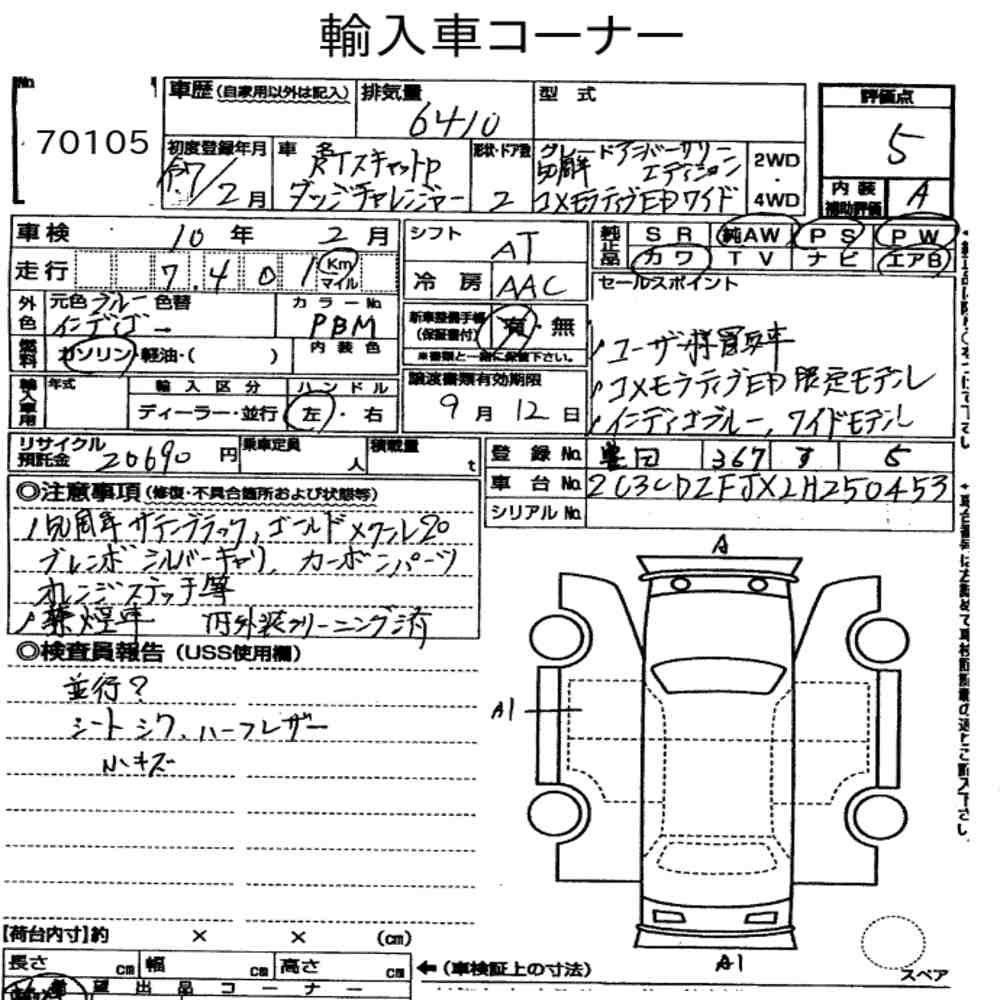 輸入車コーナー
No.
70105
車歴(自家用以外は記入)
排気量
6410
型式
評価点
5
初度登録年月
R7/2月
車名
RTスキャットP
ダッジチャレンジャー
形状・ドア数
2
グレード アニバーサリー
50周年 エディション
コメモラティブED ワイド
2WD
・
4WD
内装
補助評価
A
車検
10年 2月
シフト
AT
純正品
SR 純AW PS PW
カワ TV ナビ エアB
走行
7,401 Km
マイル
冷房
AAC
セールスポイント
外色
元色 ブルー 色替
インディゴ →
カラーNo.
PBM
新車整備手帳
(保証書付)
有・無
※書類と一緒に保管下さい。
燃料
ガソリン・軽油・( )
内装色
・ユーザー様買取車
・コメモラティブED 限定モデル
・インディゴブルー,ワイドモデル
輸入車用
年式
輸入区分
ハンドル
ディーラー・並行
左・右
譲渡書類有効期限
9月12日
リサイクル
預託金
20690円
乗車定員
人
積載量
t
登録No.
豊田 367 す 5
車台No.
2C3CDZFJXLH250453
シリアルNo.
◎注意事項(修復・不具合箇所および状態等)
・50周年サテンブラック,ゴールドメタール20
ブレンボシルバーキャリ, カーボンパーツ
オレンジステッチ等
・禁煙車 内外装クリーニング済
◎検査員報告(USS使用欄)
並行?
シートシワ、ハーフレザー
小キズ
A
A1
A1
スペア
【荷台内寸】約 × × (cm)
長さ cm 幅 cm 高さ cm
←(車検証上の寸法)
希望出品コーナー